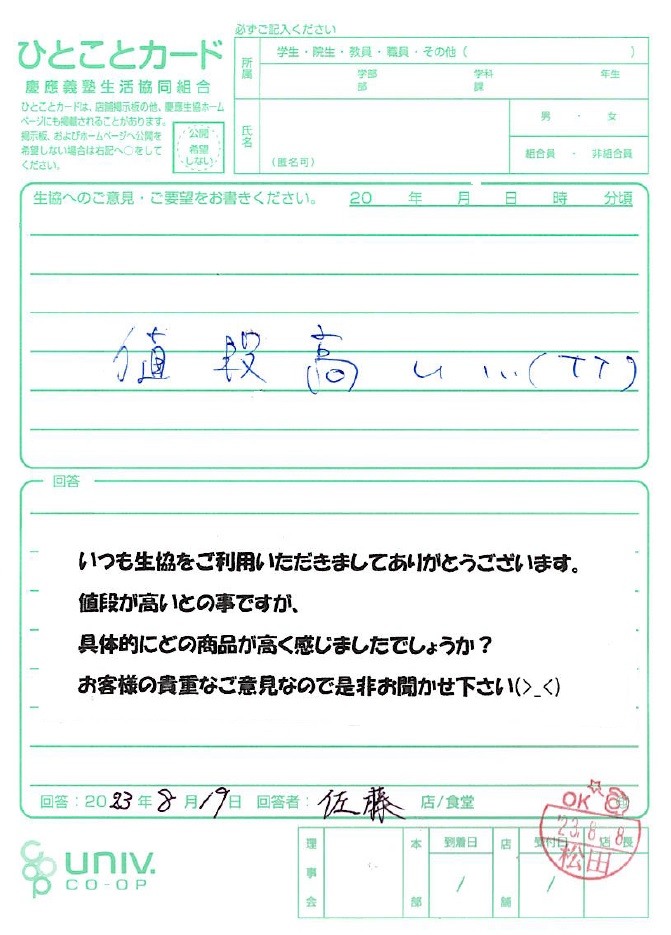 必ずご記入ください
ひとことカード
慶應義塾生活協同組合
ひとことカードは、店舗掲示板の他、慶應生協ホーム
ページにも掲載されることがあります。
掲示板、およびホームページへ公開を
希望しない場合は右記へ○をして
ください。
公開
希望
しない
所属
学生・院生・教員・職員・その他（　　　）
学部　学科　年生
部　課
氏名
（匿名可）
男　・　女
組合員　・　非組合員
生協へのご意見・ご要望をお書きください。　20　年　月　日　時　分頃
値段高い…(TT)
回答
いつも生協をご利用いただきましてありがとうございます。
値段が高いとの事ですが、
具体的にどの商品が高く感じましたでしょうか？
お客様の貴重なご意見なので是非お聞かせ下さい(>_<)
回答：2023年8月19日　回答者：佐藤　店/食堂
OK
'23.8.8
松田
UNIV.
CO-OP
理事会
本部
到着日
/
店舗
受付日
/
店長